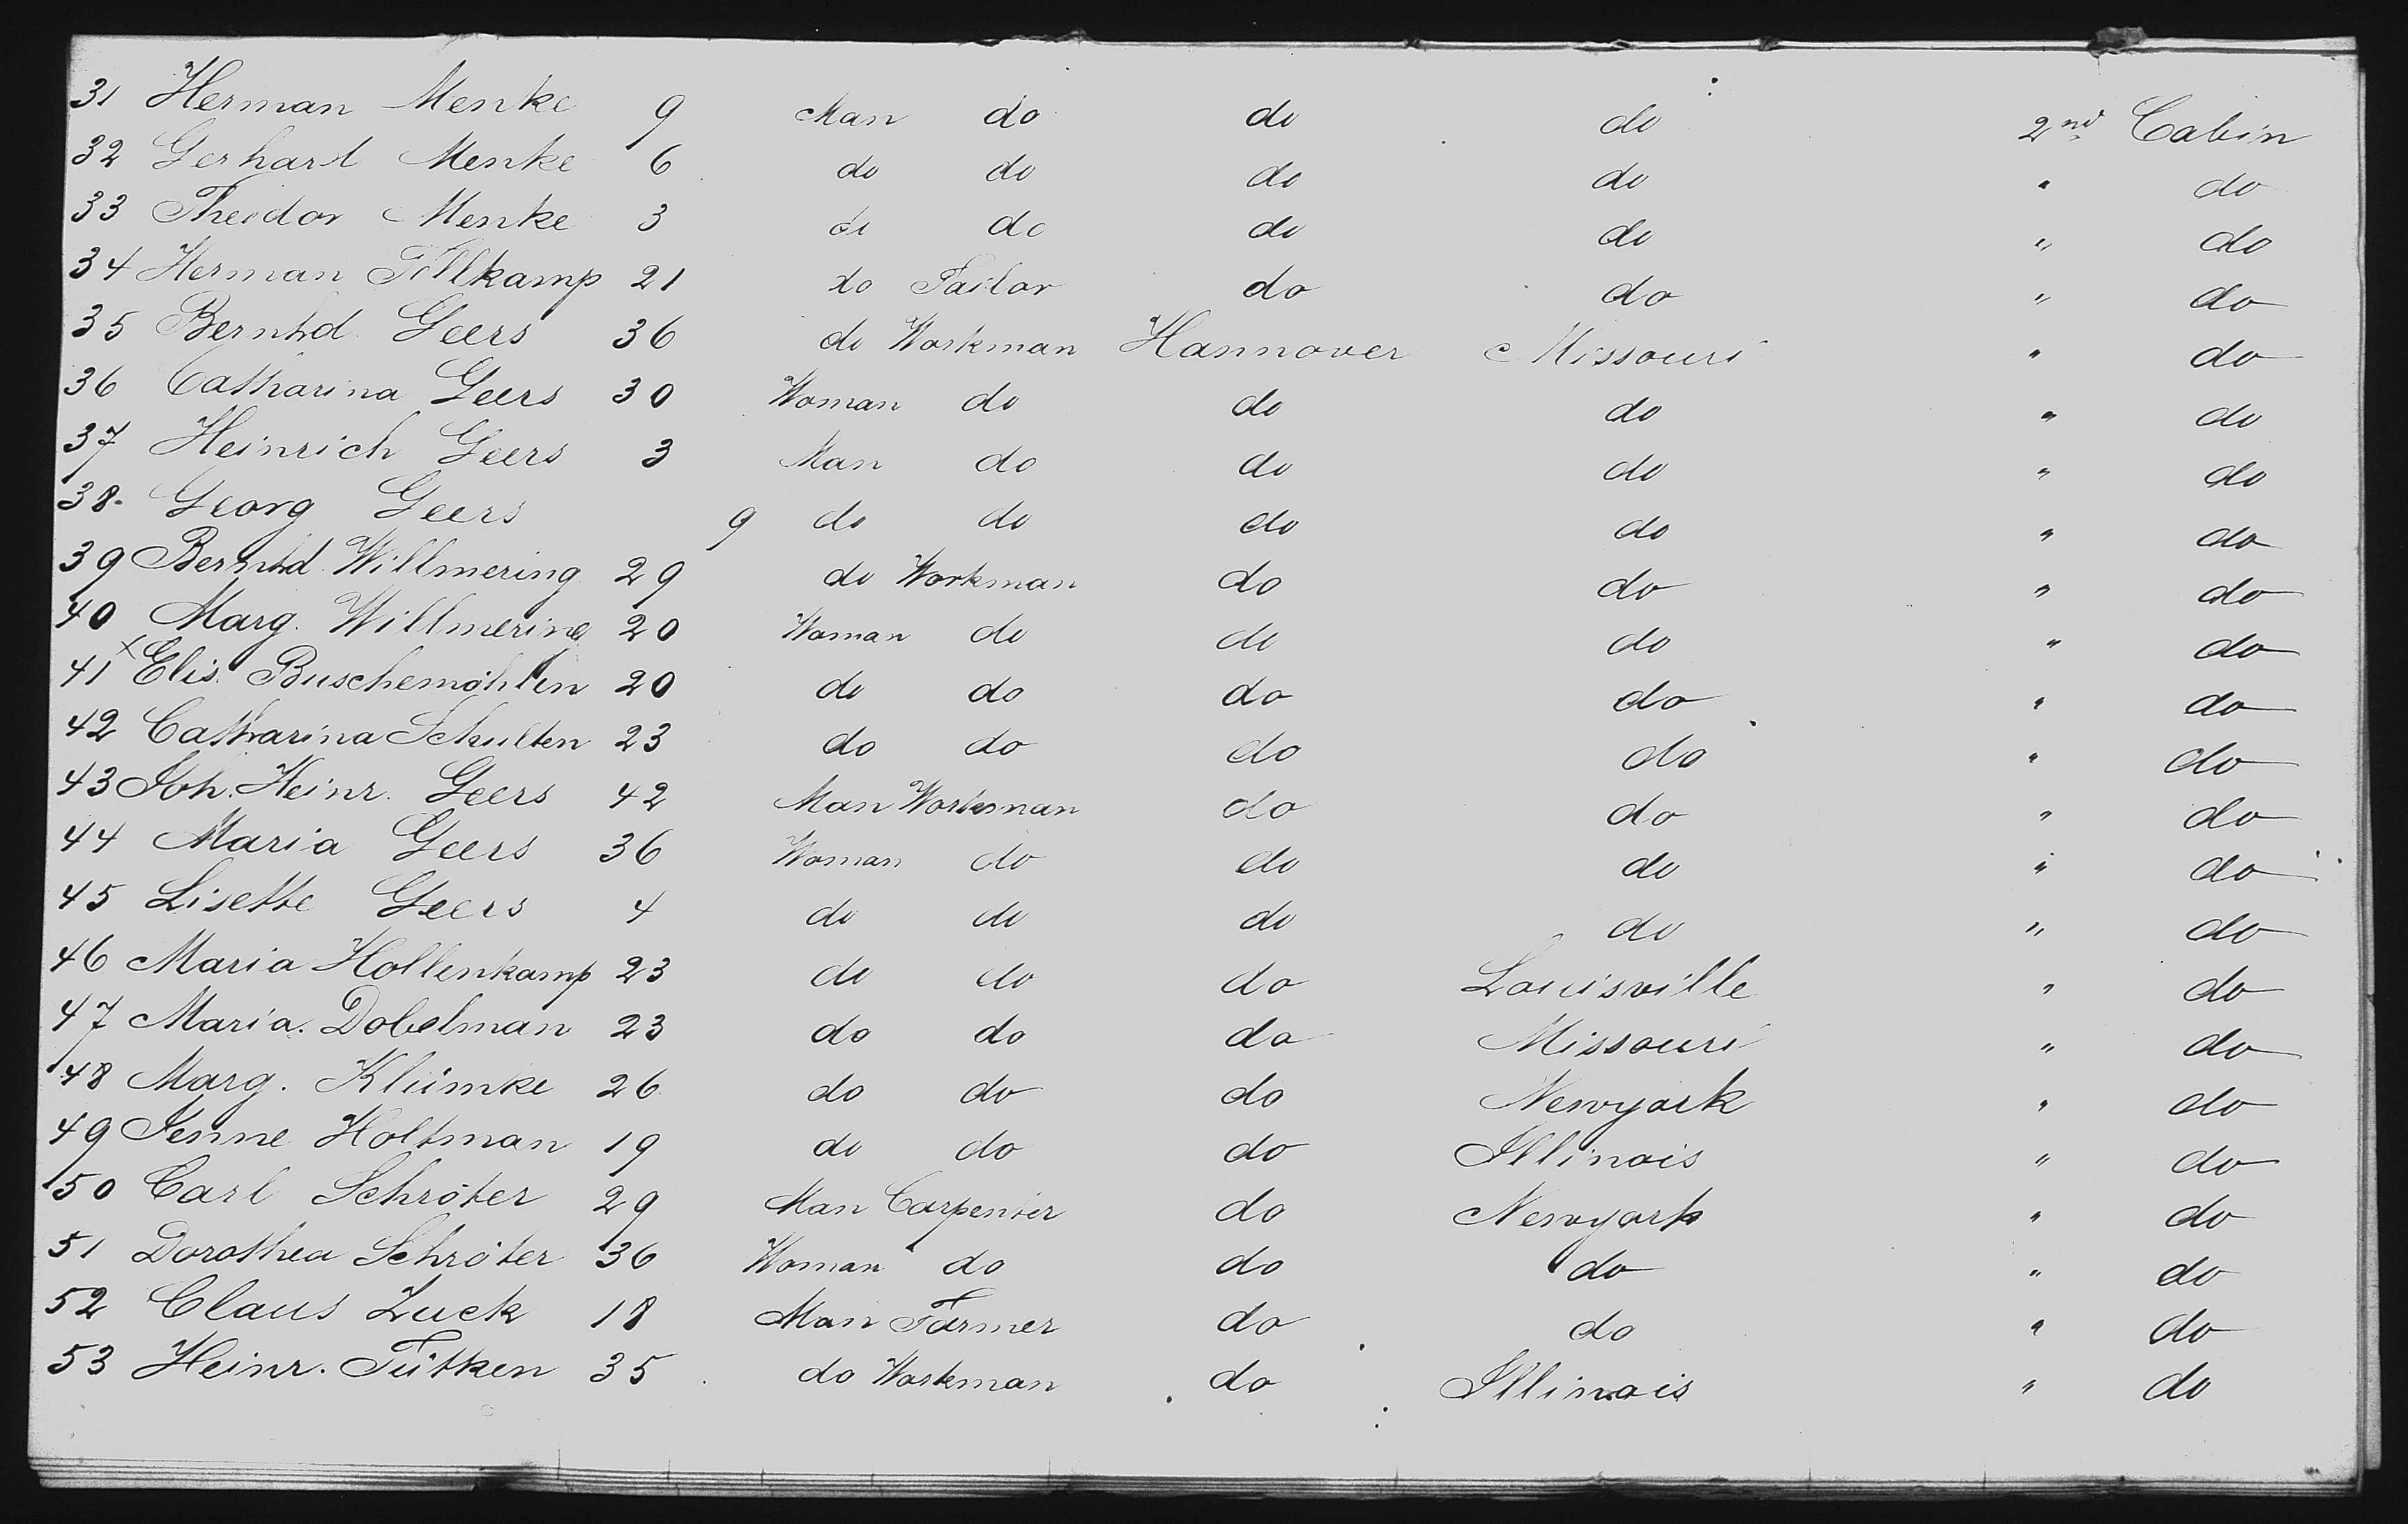 31 Herman Menke 9 Man do do do 2nd Cabin
32 Gerhard Menke 6 do do do do " do
33 Theodor Menke 3 do do do do " do
34 Herman Tillkamp 21 do Tailor do do " do
35 Bernhd. Geers 36 do Workman Hannover Missouri " do
36 Catharina Geers 30 Woman do do do " do
37 Heinrich Geers 3 Man do do do " do
38. Georg Geers 9 do do do do " do
39 Bernhd. Willmering 29 do Workman do do " do
40 Marg. Willmering 20 Woman do do do " do
41 x Elis. Buschemöhlen 20 do do do do " do
42 Catharina Schulten 23 do do do do " do
43 Joh. Heinr. Geers 42 Man Workman do do " do
44 Maria Geers 36 Woman do do do " do
45 Lisette Geers 4 do do do do " do
46 Maria Hollenkamp 23 do do do Louisville " do
47 Maria. Dobelman 23 do do do Missouri " do
48 Marg. Klümke 26 do do do Newyork " do
49 Jenne Holtman 19 do do do Illinois " do
50 Carl Schröter 29 Man Carpenter do Newyork " do
51 Dorothea Schröter 36 Woman do do do " do
52 Claus Luck 18 Man Farmer do do " do
53 Heinr. Tütken 35 do Workman do Illinois " do